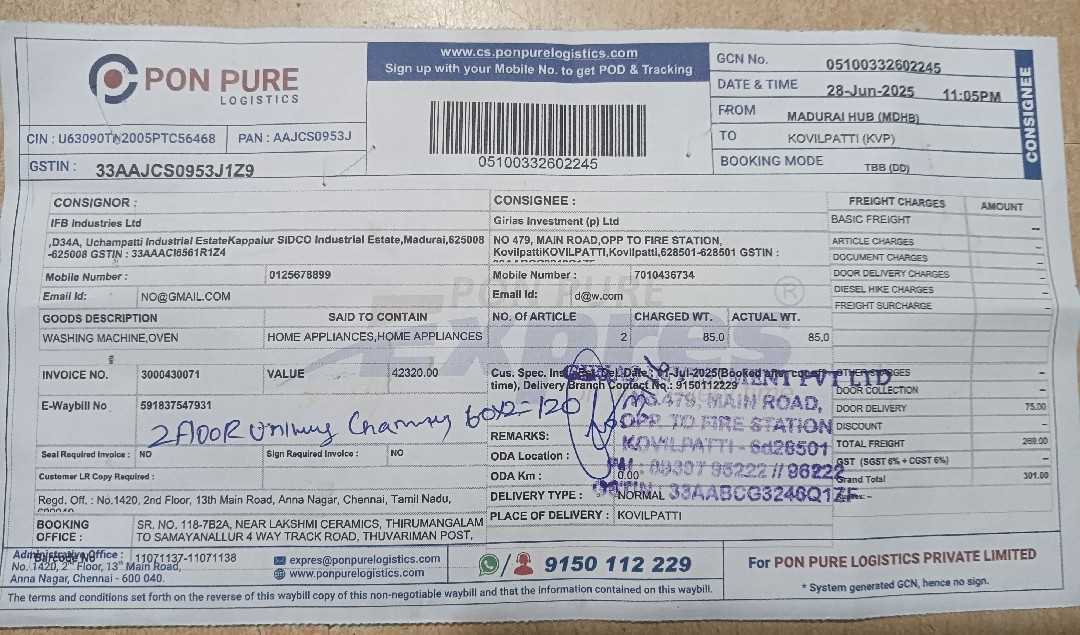 PON PURE
LOGISTICS
www.cs.ponpurelogistics.com
Sign up with your Mobile No. to get POD & Tracking
05100332602245
GCN No. 05100332602245
DATE & TIME 28-Jun-2025 11:05PM
FROM MADURAI HUB (MDHB)
TO KOVILPATTI (KVP)
BOOKING MODE TBB (DD)
CONSIGNEE
CIN : U63090TN2005PTC56468 PAN : AAJCS0953J
GSTIN : 33AAJCS0953J1Z9
CONSIGNOR :
IFB Industries Ltd
,D34A, Uchampatti Industrial EstateKappalur SIDCO Industrial Estate,Madurai,625008
-625008 GSTIN : 33AAACI6561R1Z4
Mobile Number : 0125678899
Email Id: NO@GMAIL.COM
CONSIGNEE :
Girias Investment (p) Ltd
NO 479, MAIN ROAD,OPP TO FIRE STATION,
KovilpattiKOVILPATTI,Kovilpatti,628501-628501 GSTIN :
Mobile Number : 7010436734
Email Id: d@w.com
FREIGHT CHARGES AMOUNT
BASIC FREIGHT --
ARTICLE CHARGES –
DOCUMENT CHARGES –
DOOR DELIVERY CHARGES –
DIESEL HIKE CHARGES –
FREIGHT SURCHARGE –
PON PURE
Expres ®
GOODS DESCRIPTION SAID TO CONTAIN NO. OF ARTICLE CHARGED WT. ACTUAL WT.
WASHING MACHINE,OVEN HOME APPLIANCES,HOME APPLIANCES 2 85.0 85.0
INVOICE NO. 3000430071 VALUE 42320.00
E-Waybill No 591837547931
2 FLOOR Charming 60x2=120
Seal Required Invoice : NO Sign Required Invoice : NO
Customer LR Copy Required :
Cus. Spec. Del.Date: 01-Jul-2025(Booked after
time), Delivery Branch Contact No.: 9150112229
REMARKS:
ODA Location :
ODA Km : 0.00
DELIVERY TYPE : NORMAL
PLACE OF DELIVERY : KOVILPATTI
PVT LTD
NO.479, MAIN ROAD,
OPP TO FIRE STATION
KOVILPATTI - 628501
96222
33AABCG3246Q1ZF
CHARGES –
DOOR COLLECTION –
DOOR DELIVERY 75.00
DISCOUNT –
TOTAL FREIGHT 269.00
GST (SGST 6% + CGST 6%) –
Grand Total 301.00
Regd. Off. : No.1420, 2nd Floor, 13th Main Road, Anna Nagar, Chennai, Tamil Nadu,
BOOKING OFFICE : SR. NO. 118-7B2A, NEAR LAKSHMI CERAMICS, THIRUMANGALAM
TO SAMAYANALLUR 4 WAY TRACK ROAD, THUVARIMAN POST,
Administrative Office :
Barcode No 11071137-11071138
No. 1420, 2nd Floor, 13th Main Road,
Anna Nagar, Chennai - 600 040.
expres@ponpurelogistics.com
www.ponpurelogistics.com
9150 112 229
For PON PURE LOGISTICS PRIVATE LIMITED
* System generated GCN, hence no sign.
The terms and conditions set forth on the reverse of this waybill copy of this non-negotiable waybill and that the information contained on this waybill.